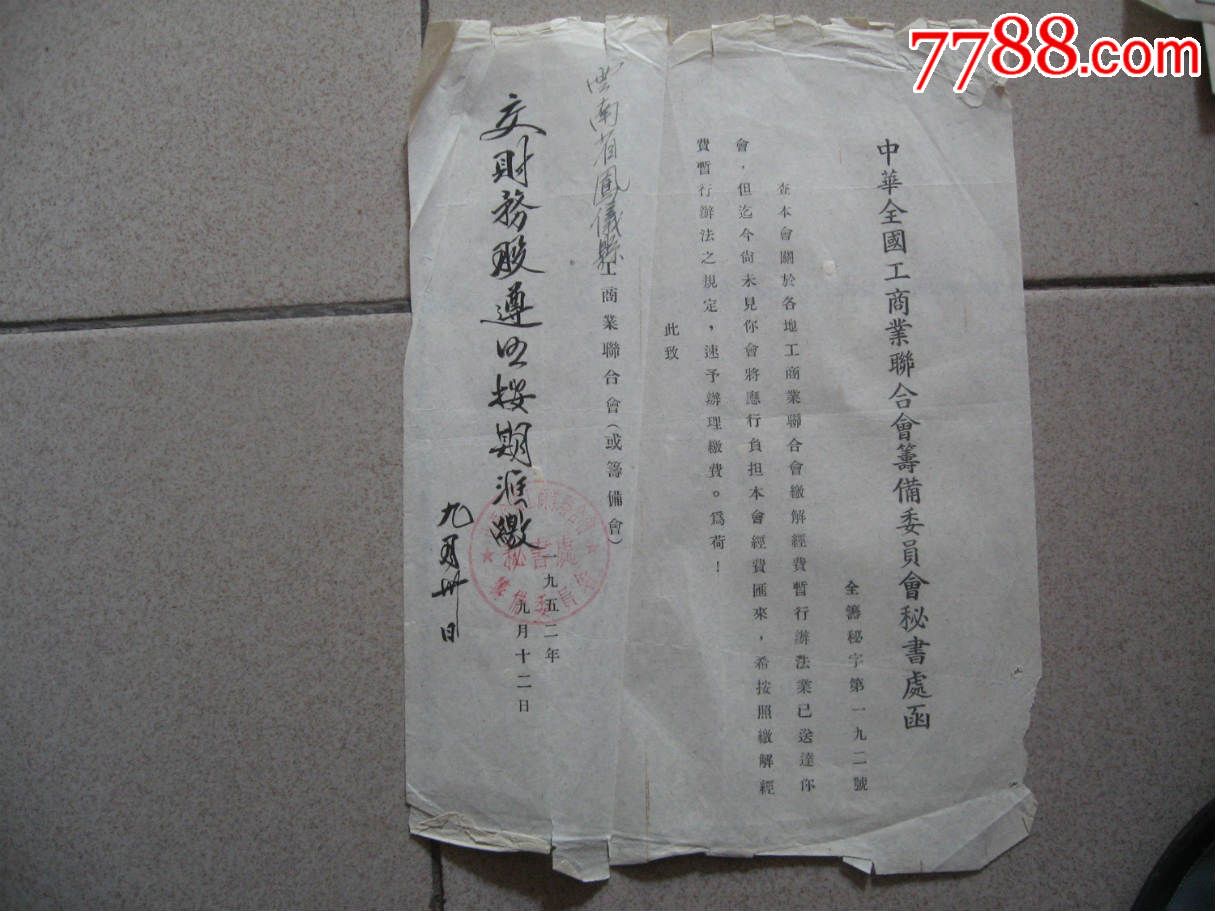 7788.com
中華全國工商業聯合會籌備委員會秘書處函
全籌秘字第一九二號
查本會關於各地工商業聯合會繳解經費暫行辦法業已送達你
會，但迄今尙未見你會將應行負担本會經費匯來，希按照繳解經
費暫行辦法之規定，速予辦理繳費。爲荷！
此致
雲南省鳳儀縣工商業聯合會（或籌備會）
一九五二年
九月十二日
秘書處
籌備委員會
交財務股遵照按期滙繳
九月卅日